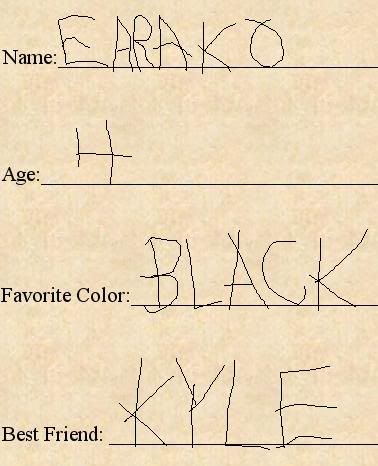 Name: EARAKO
Age: 4
Favorite Color: BLACK
Best Friend: KYLE